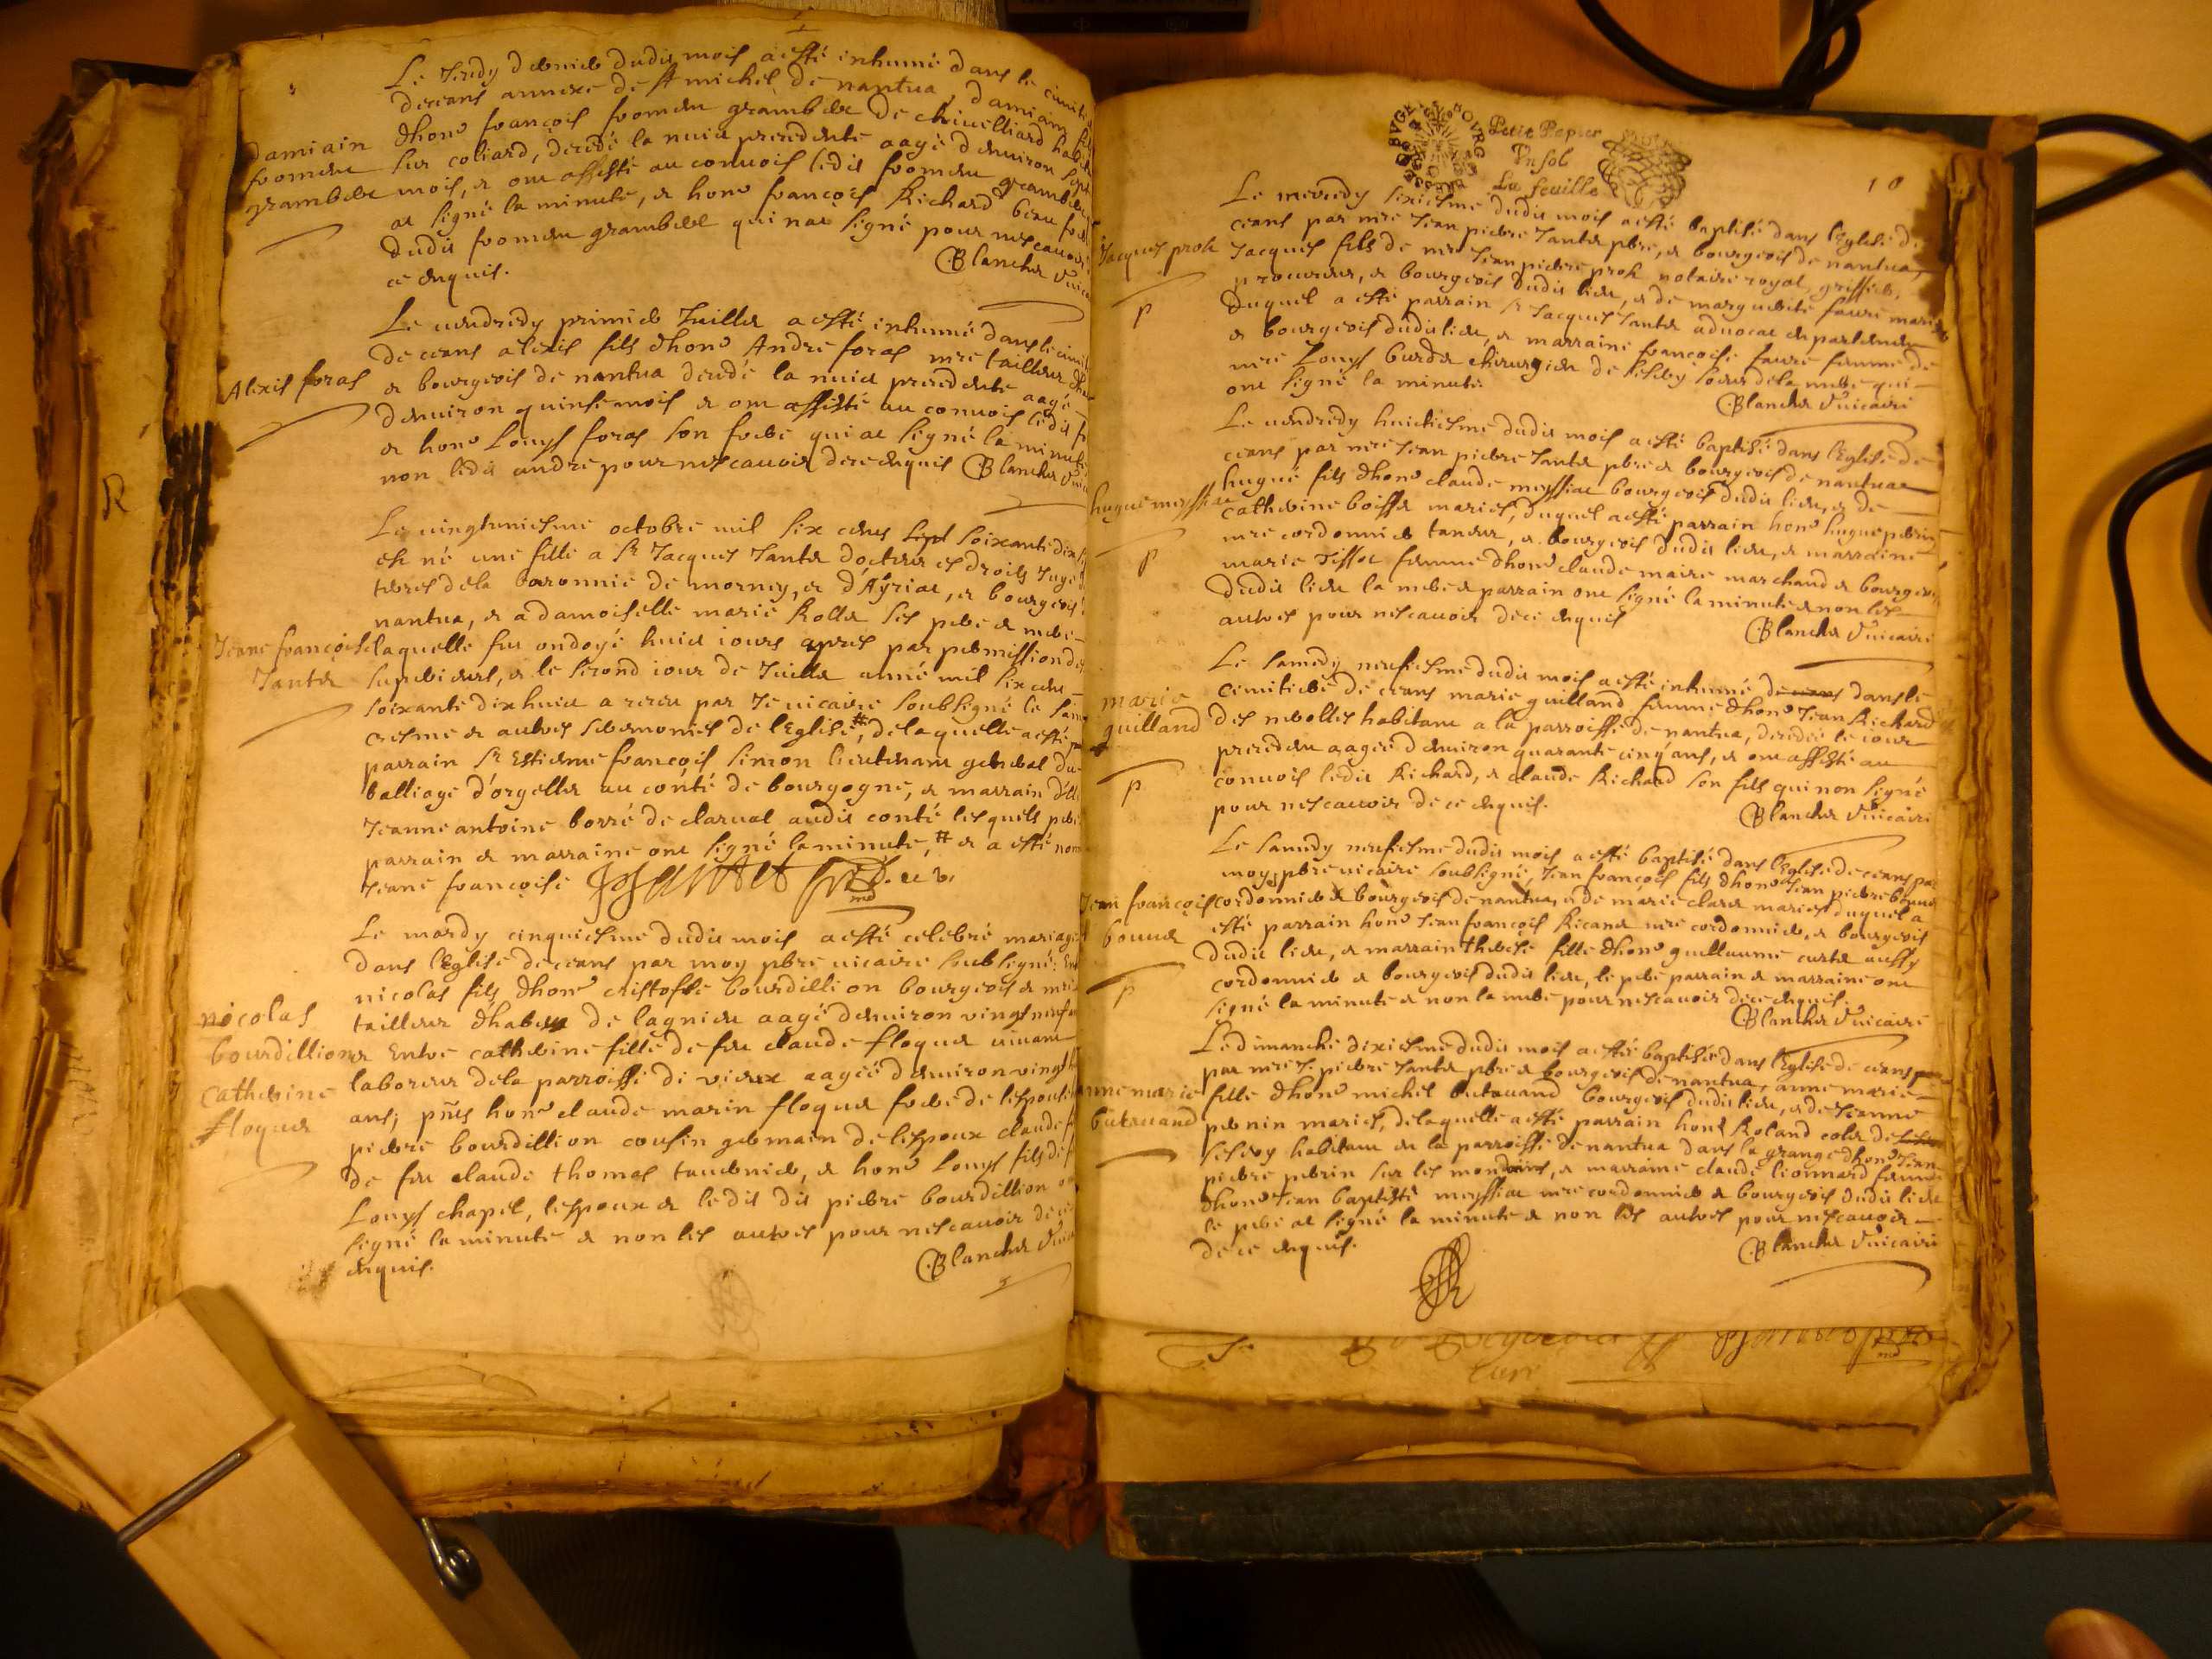 Le Jeudy dernier dudit mois a esté inhumé dans le
de ceans annexe de St michel de nantua, damian
damiain
dhone françois froment grambert de cheuelliard
froment
sur coliard, decedé la nuict precedente aagé denuiron sept
grambert
mois, et ont assisté au conuois ledit froment grambert
at signé la minute, et hone françois Richard beau
dudit froment grambert qui nat signé pour ne scauoir
ce enquis.
Blanchet
Le uendredy premier Juillet a esté inhumé dans le
de ceans alexis fils dhone Andre foras mre tailleur
Alexis foras
et bourgeois de nantua decedé la nuict precedente aagé
denuiron quinse mois et ont assisté au conuois ledit
et hone Louys foras son frere qui at signé la minute
non ledit andre pour ne scauoir de ce enquis Blanchet
Le uingtuniesme octobre mil six cents sept soixante dix
est né une fille a Sr Jacques Jantet docteur es droits Juge
terres de la baronnie de mornay, et d'Ayriat, et bourgeois
nantua, et a damoiselle marie Rollet ses pere et mere
Jeane françoise
laquelle fut ondoyé huict iours apres par permission des
Jantet
superieurs, et le second iour de Juillet anné mil six cent
soixante dix huict a receu par Je uicaire soubsigné le
cresme et autres seremonies de l'Eglise #, de laquelle a esté
parrain Sr Estienne françois Simon lieutenant general du
balliage d'orgellet au conté de bourgogne, et marrain
Jeanne antoine borré de claruat audit conté lesquels pere
parrain et marraine ont signé la minute, # et a esté
Jeane françoise
Le mardy cinquiesme dudit mois a esté celebré mariage
dans l'Eglise de ceans par moy pbre uicaire soubsigné:
nicolas fils dhone cristofle bourdillion bourgeois et
nicolas
tailleur dhabits de lagnieu aagé denuiron vingt neuf
bourdillion
et Entre catherine fille de feu claude floquet uiuant
Catherine
laboreur de la parroisse di vieux aageé denuiron vingt
floquet
ans; pñts hone claude marin floquet frere de lespouse
pierre bourdillion cousin germain de lespoux claude
de feu claude thomas tauernier, et hone Louys fils de
Louys chapel, lespoux et ledit dit pierre bourdillion
signé la minute et non les autres pour ne scauoir de
enquis.
Blanchet
Petit Papier
Un sol
La feuille
10
Le mecredy sixiesme dudit mois a esté baptisé dans l'Eglise de
ceans par mre Jean pierre Jantet pbre, et bourgeois de nantua,
Jacques proh
Jacques fils de mre Jean pierre proh notaire royal, greffier,
procureur, et bourgeois dudit lieu, et de marguerite faure mariés
p
duquel a esté parrain Sr Jacques Jantet aduocat en parlement
et bourgeois dudit lieu, et marraine françoise faure femme de
mre Louys burdet chirurgien de soeur de la mere qui
ont signé la minute
Blanchet Vuicaire
Le uendredy huictiesme dudit mois a esté baptisé dans l'Eglise de
ceans par mre Jean pierre Jantet pbre et bourgeois de nantua
hugue fils dhone claude meyssiat bourgeois dudit lieu, et de
hugue meyssiat
catherine boisset mariés, duquel a esté parrain hone hugue perrin
mre cordonnier taneur, et bourgeois dudit lieu, et marraine
p
marie tissot femme dhone claude maire marchand et bourgeois
dudit lieu la mere et parrain ont signé la minute et non les
autres pour ne scauoir de ce enquis
Blanchet Vuicaire
Le samedy neufiesme dudit mois a esté inhumé de ceans dans le
marie
cimitiere de ceans marie guilland femme dhone Jean Richard
guilland
des neolles habitant a la parroisse de nantua, decedeé le iour
precedent aageé denuiron quarante cinq ans, et ont assisté au
p
conuois ledit Richard, et claude Richard son fils qui non signé
pour ne scauoir de ce enquis.
Blanchet Vuicaire
Le samedy neufiesme dudit mois a esté baptisé dans l'Eglise de ceans par
moy pbre uicaire soubsigné, Jean françois fils dhone Jean pierre
Jean françois
cordonnier et bourgeois de nantua, et de marie claret mariés duquel a
esté parrain hone Jean françois Ricanet mre cordonnier, et bourgeois
dudit lieu, et marrain therese fille dhone guillaume curtet aussy
p
cordonnier et bourgeois dudit lieu, le pere parrain et marraine ont
signé la minute et non la mere pour ne scauoir de ce enquis.
Blanchet Vuicaire
Le dimanche dixiesme dudit mois a esté baptisée dans l'Eglise de ceans
par mre J. pierre Jantet pbre et bourgeois de nantua, anne marie
anne marie
fille dhone michel butauand bourgeois dudit lieu, et de Jeanne
butauand
pernin mariés, de laquelle a esté parrain hone Roland colet de
habitant en la parroisse de nantua dans la grange dhone Jean
pierre perrin sur les mondains, et marraine claude lionnard femme
dhone Jean baptiste meyssiat mre cordonnier et bourgeois dudit lieu
le pere at signé la minute et non les autres pour ne scauoir
de ce enquis.
Blanchet Vuicaire